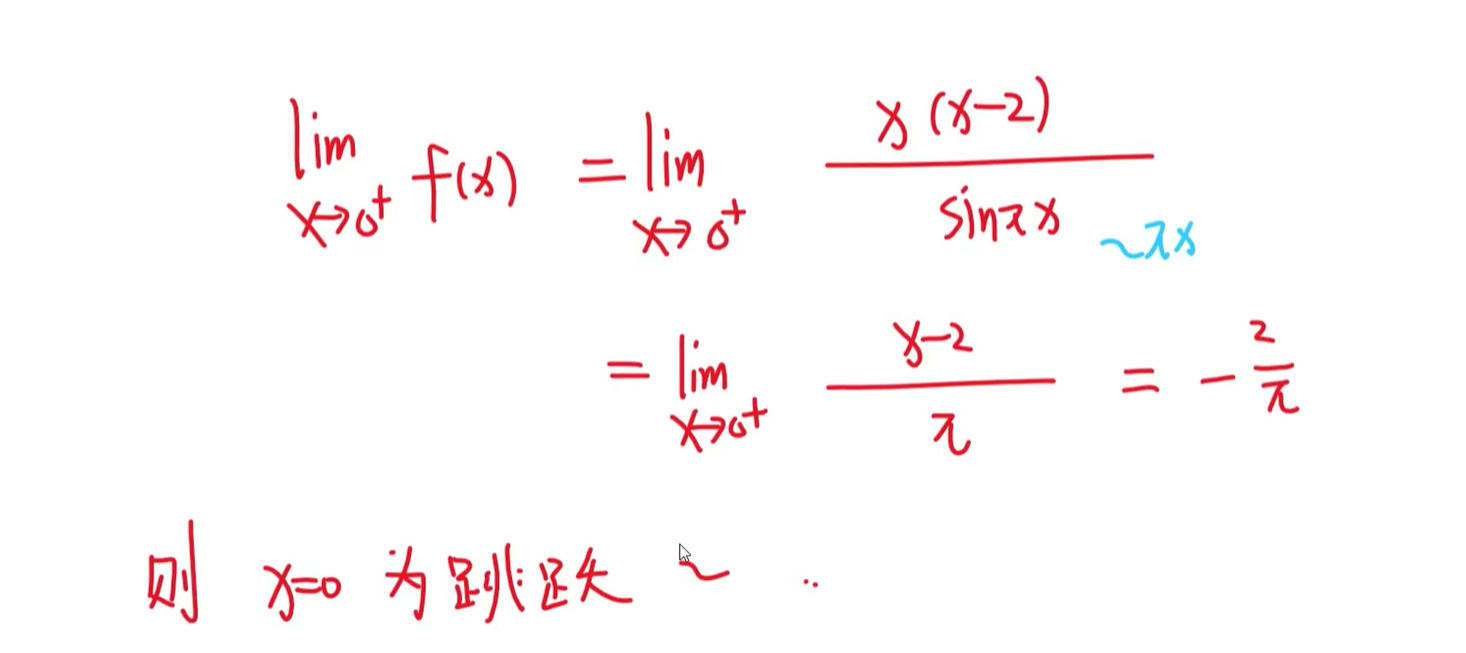 lim x→0⁺ f(x) = lim x→0⁺ x(x-2) / sinπx ~πx
= lim x→0⁺ x-2 / π = - 2/π
则 x=0 为跳跃 ~ ..